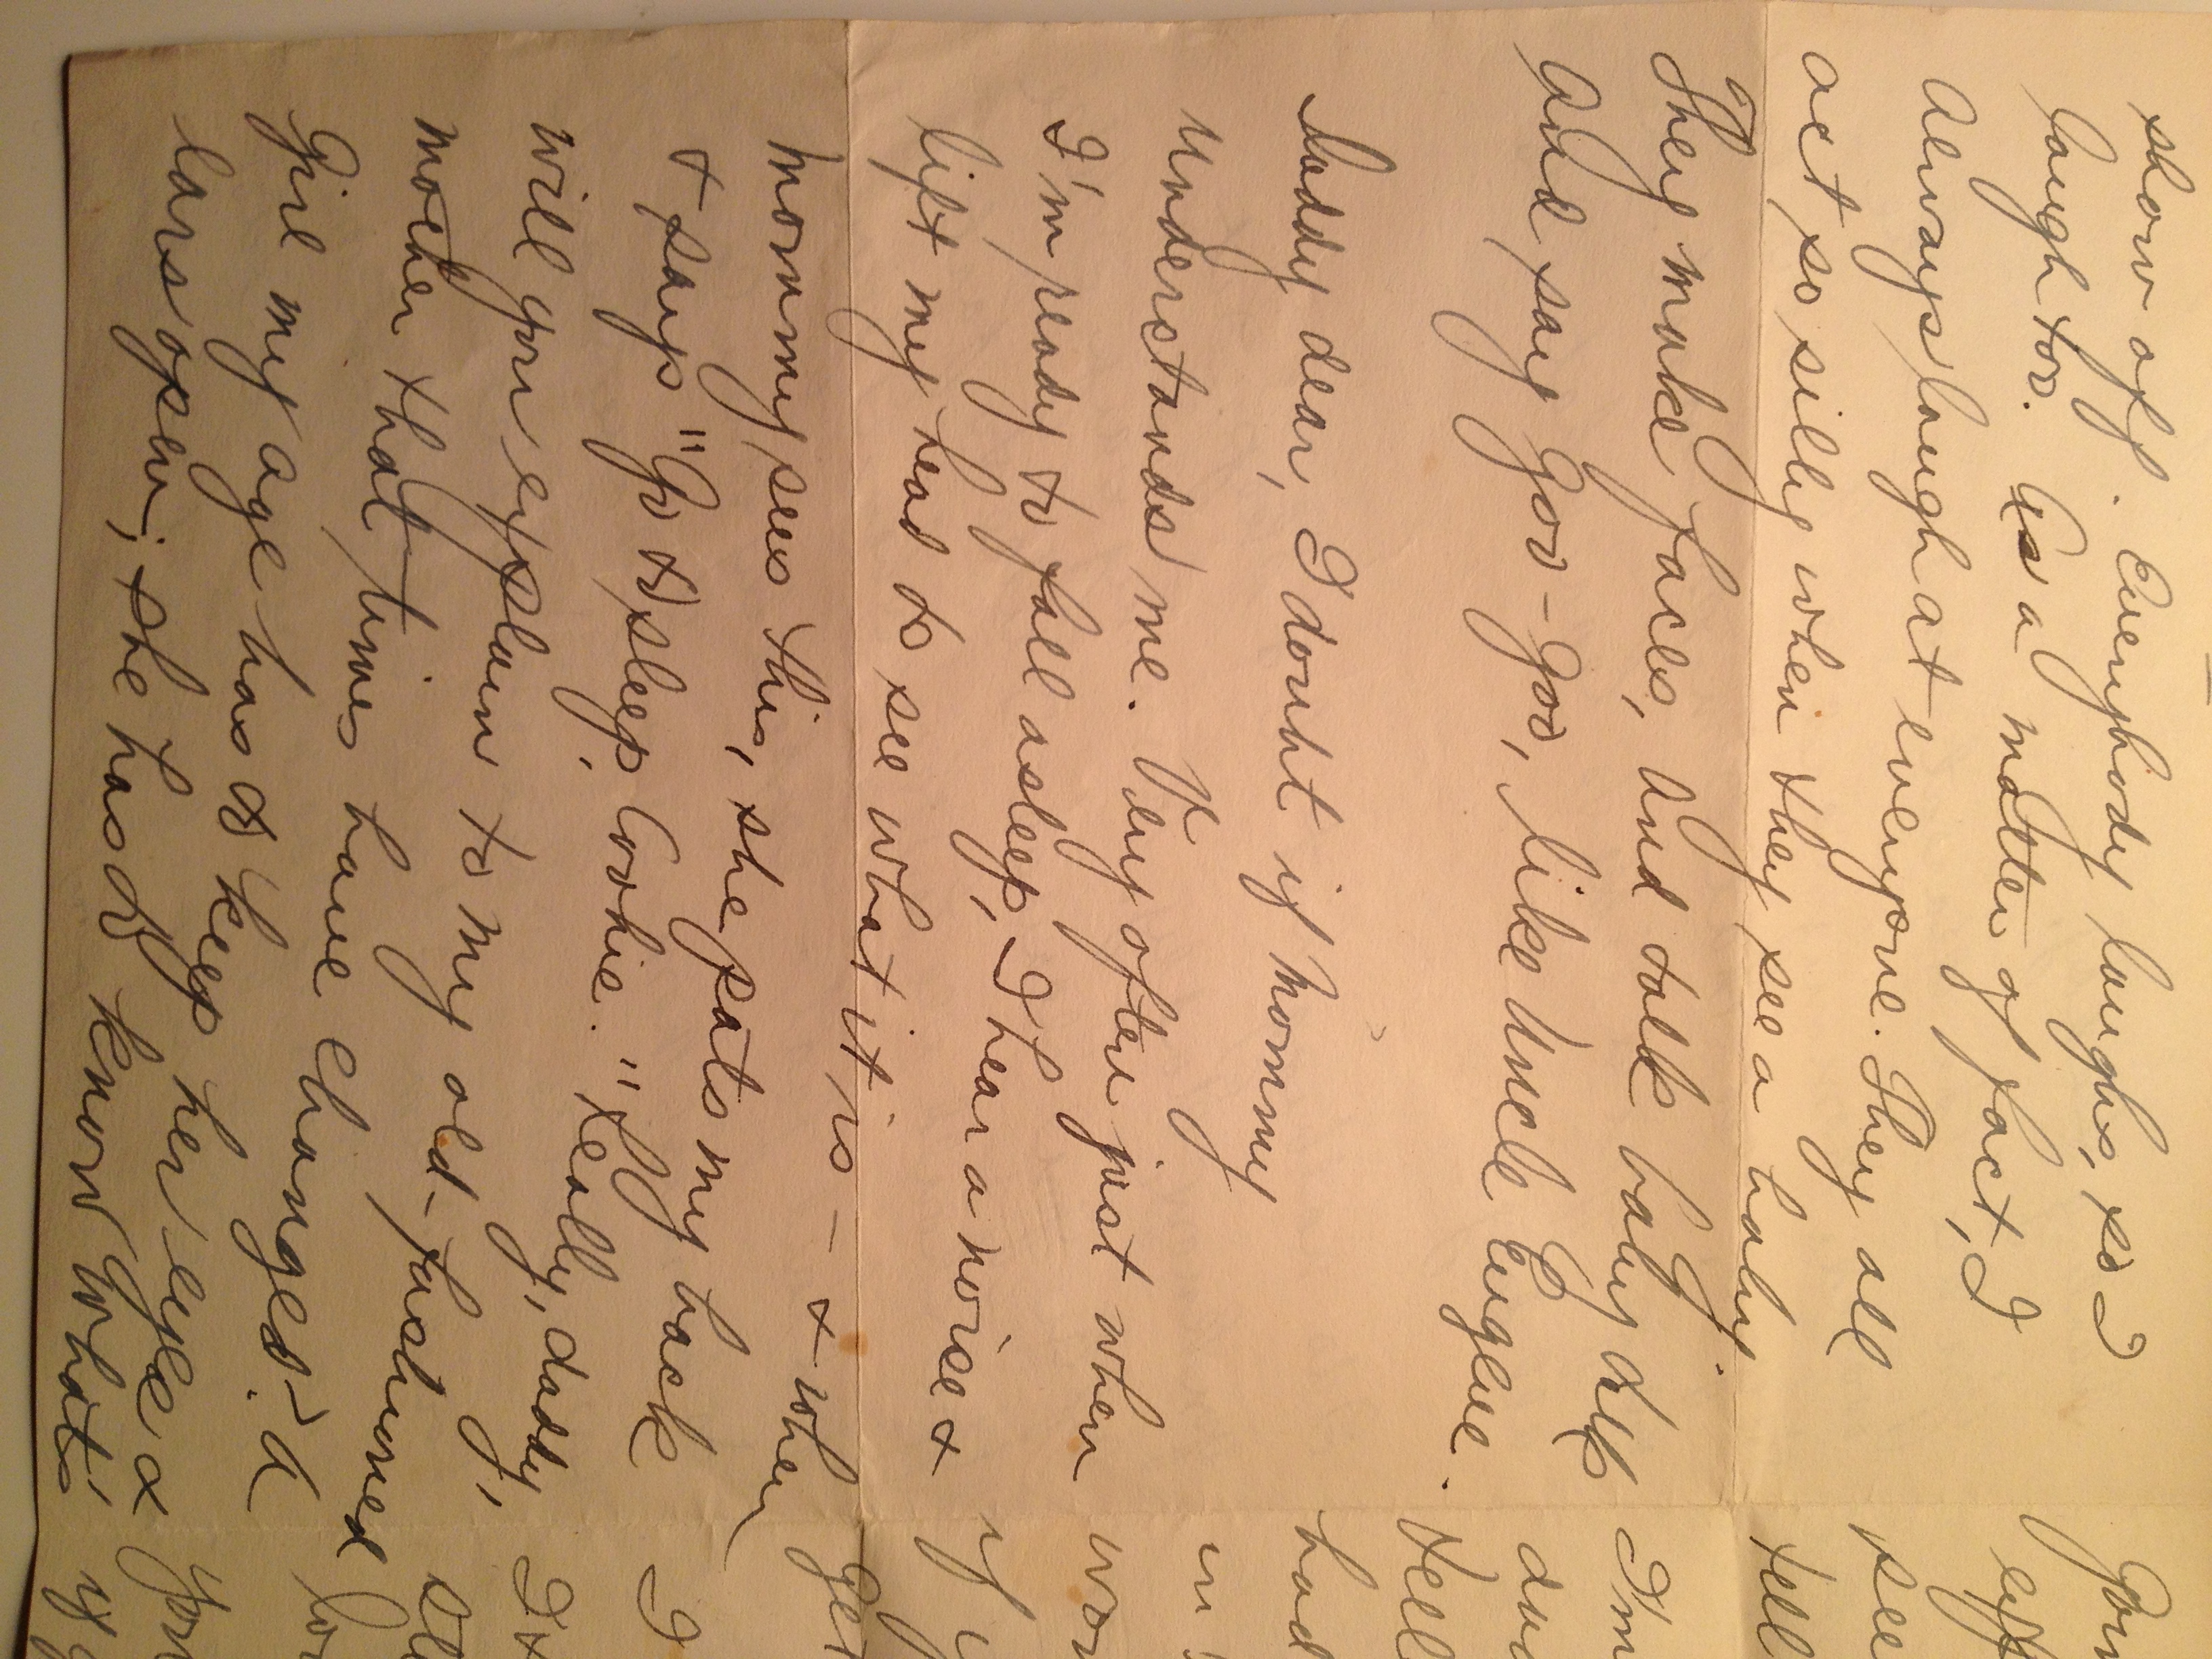 show off. Everybody laughs, so I
laugh too. As a matter of fact, I
always laugh at everyone. They all
act so silly when they see a baby.
They make faces, and talk baby talk
and say goo-goo, like Uncle Eugene.
Daddy dear, I doubt if mommy
understands me. Very often just when
I'm ready to fall asleep, I hear a noise &
lift my head to see what it is - & when
mommy sees this, she pats my back
& says "Go to sleep, Cookie." Really, daddy,
will you explain to my old-fashioned
mother that times have changed - a
girl my age has to keep her eyes &
ears open; she has to know what's
you
see
tell
I'm
tell
had
in
if y
get
I
you